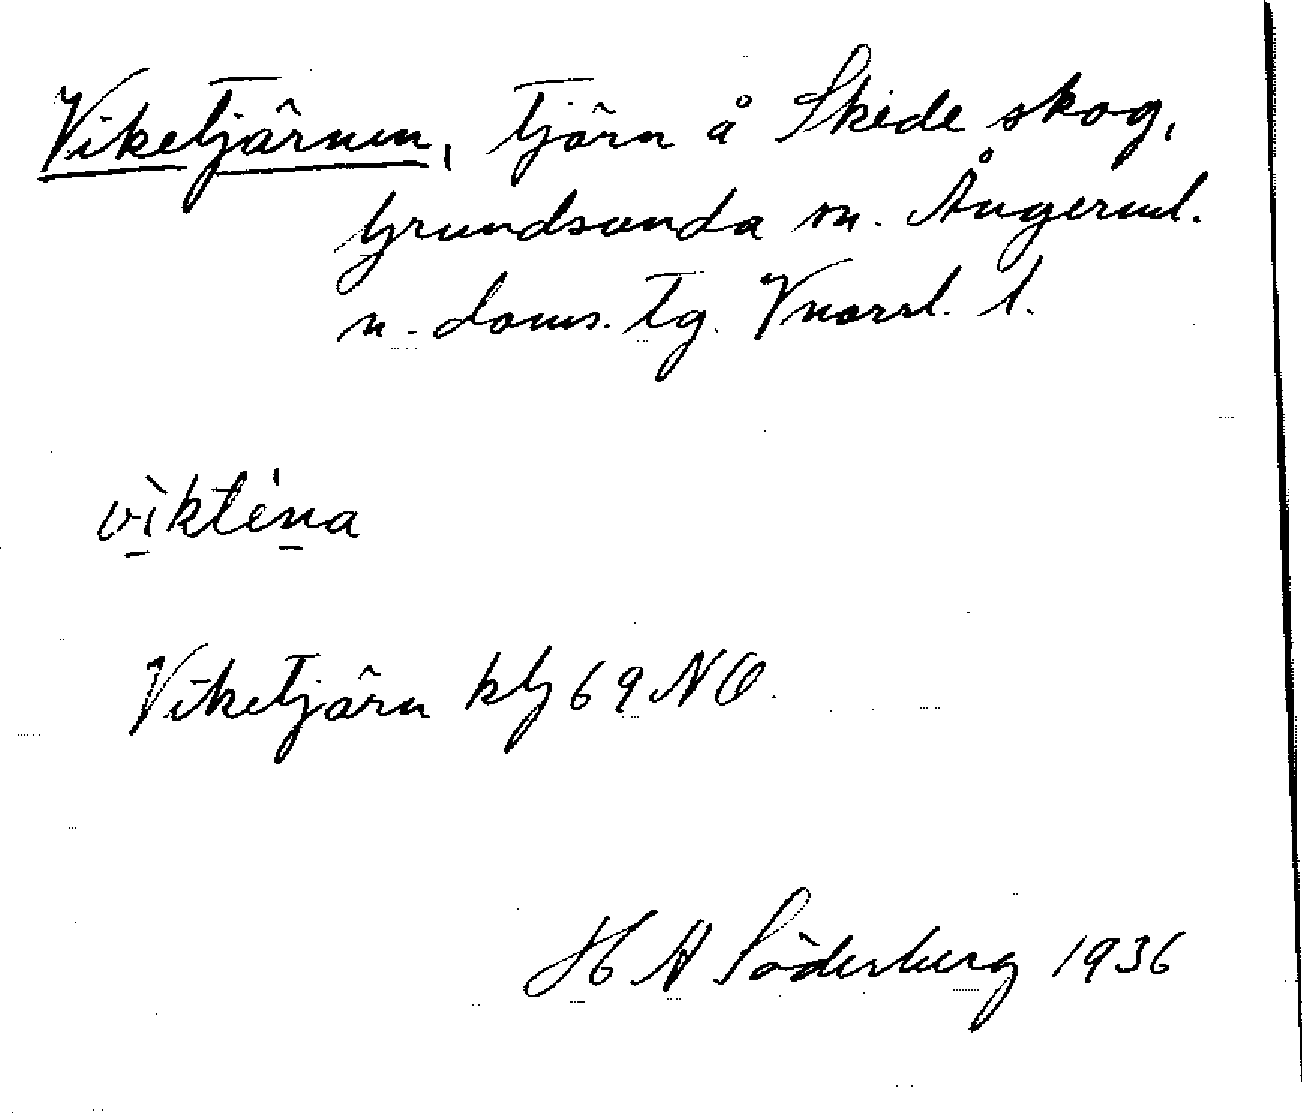 Viketjärnen, Tjärn å Skede skog,
Grundsunda sn. Ångerml.
n. doms. tg. Vnorrl. l.
vìkténa
Viketjärn kbl 69 NO.
H A Söderberg 1936